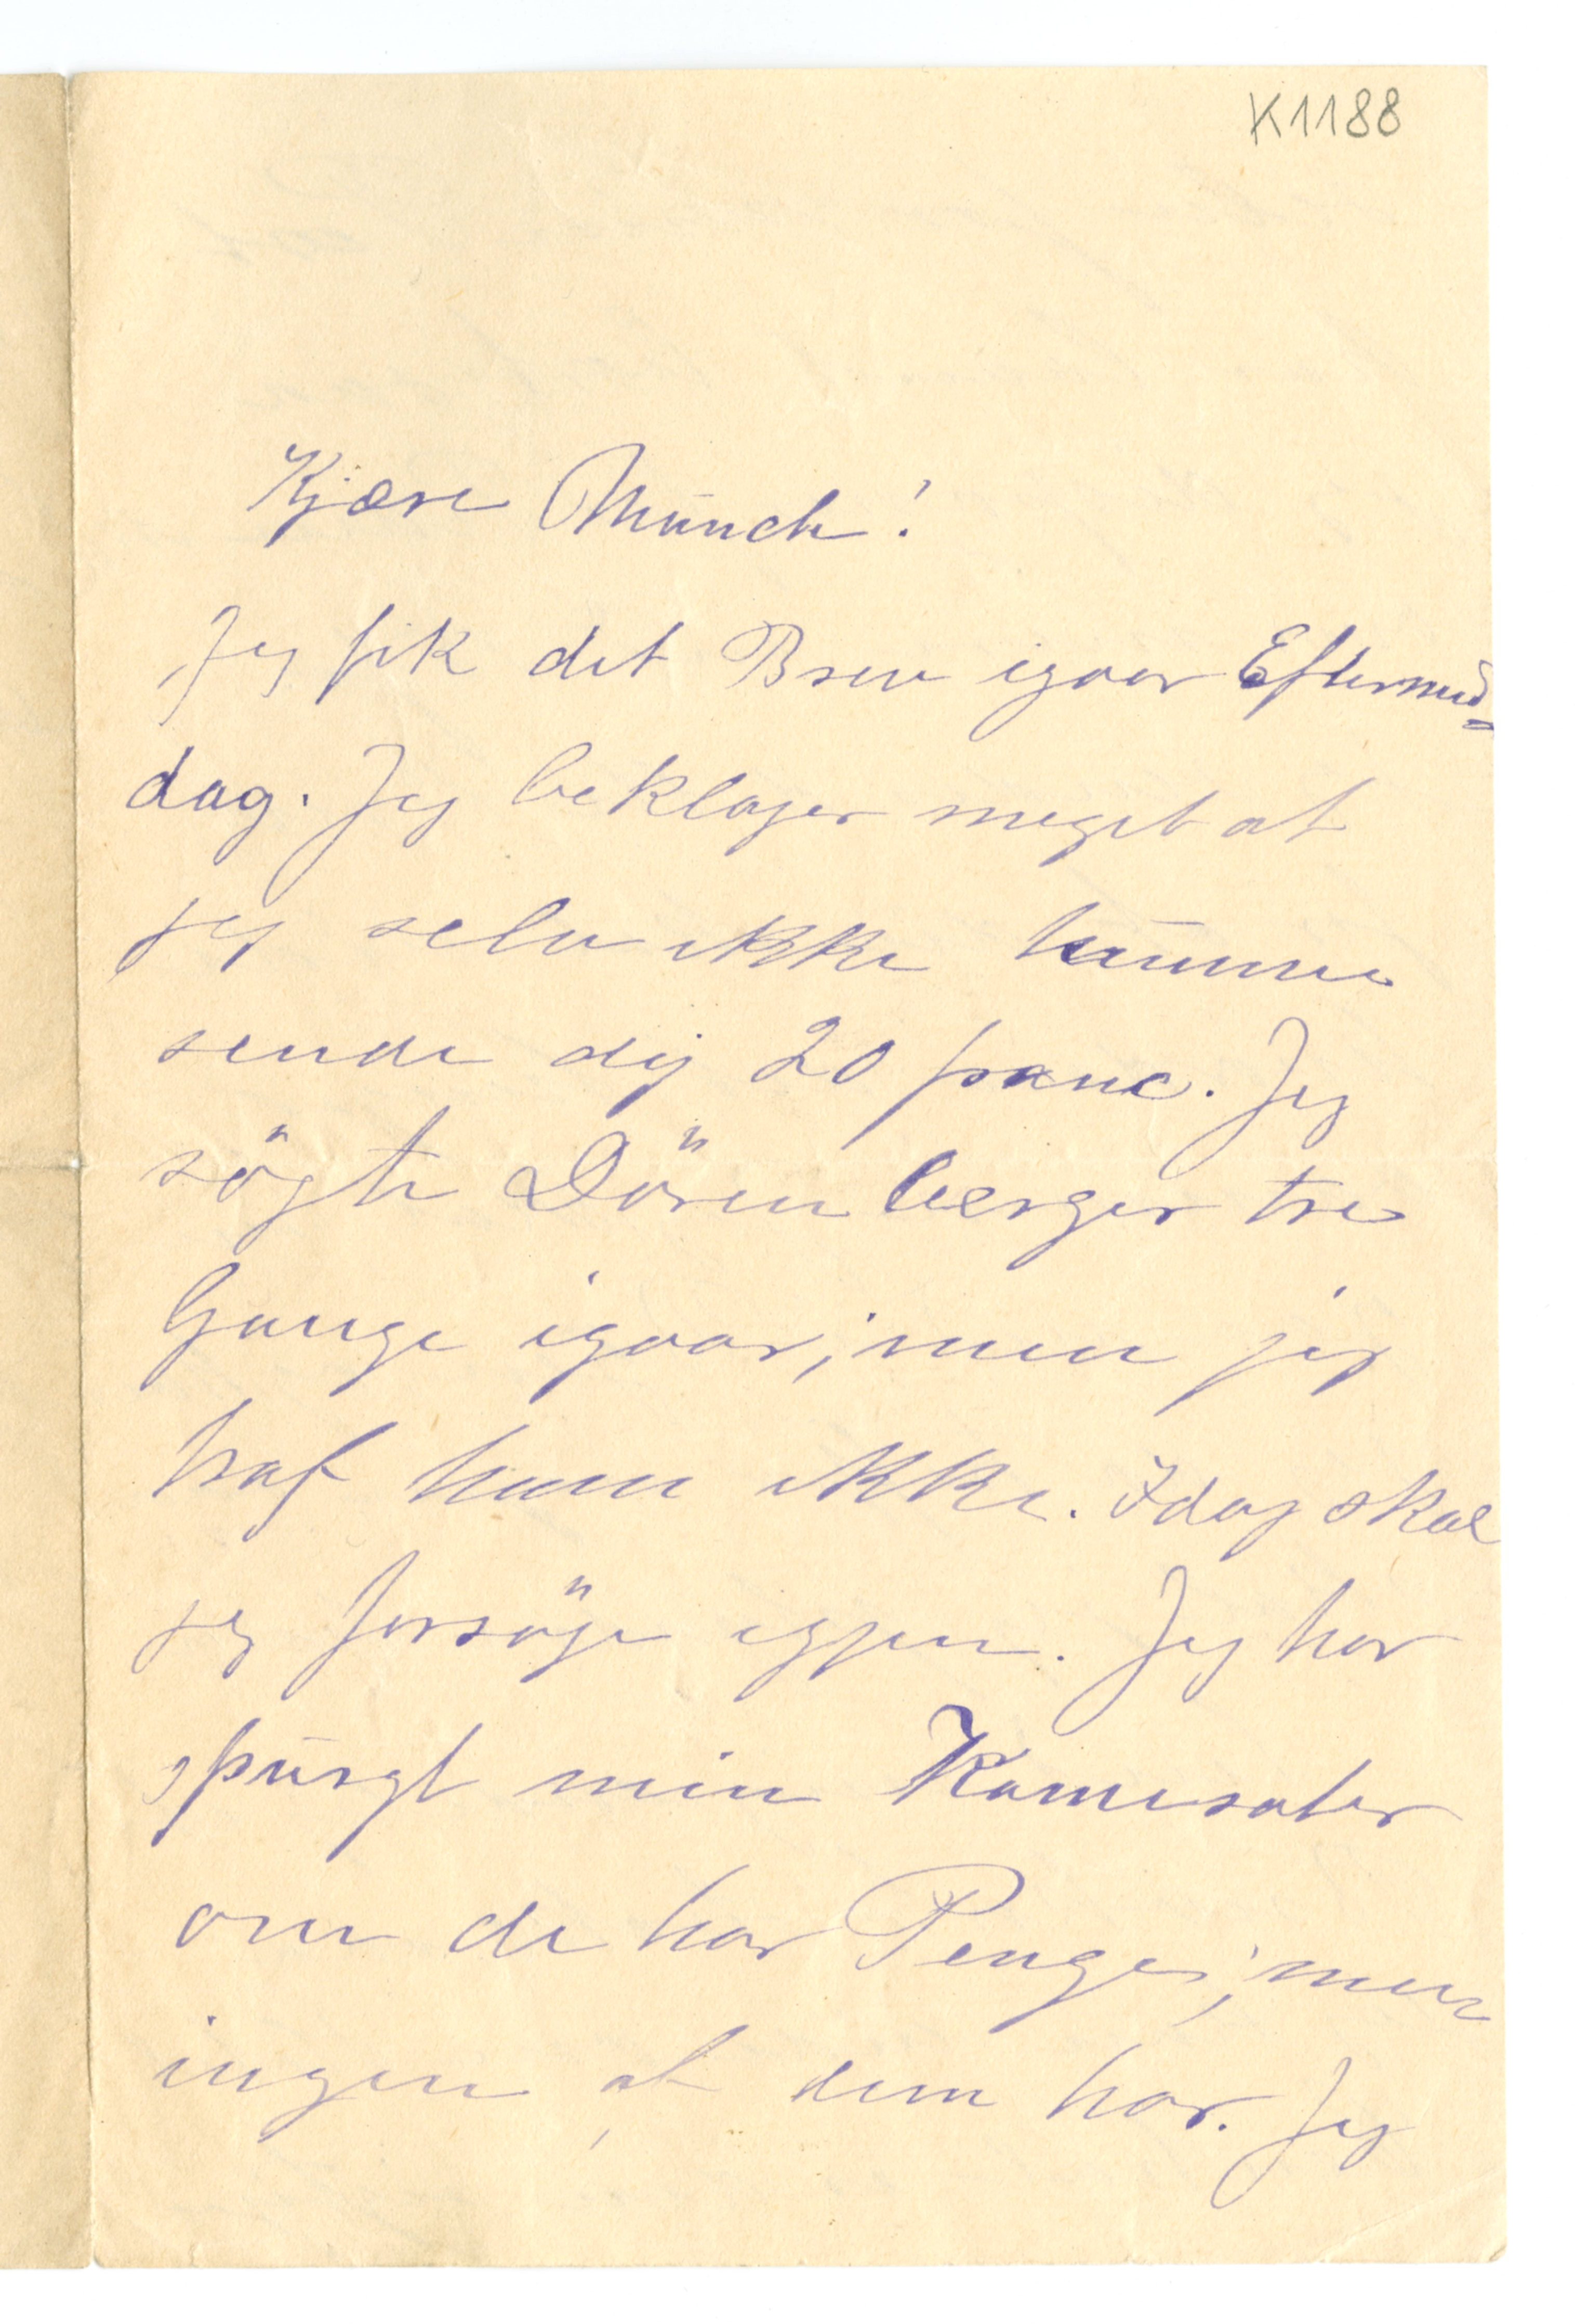 K1188
Kjære Munch!
Jeg fik det Brev igaar Eftermid=
dag. Jeg beklager meget at
jeg selv ikke kunne
sende dig 20 franc. Jeg
sögte Dörnberger tre
Gange igaar; men jeg
traf ham ikke. Idag skal
jeg forsöge igjen. Jeg har
spurgt min Kamerater
om de har Penge; men
ingen af dem har. Jeg